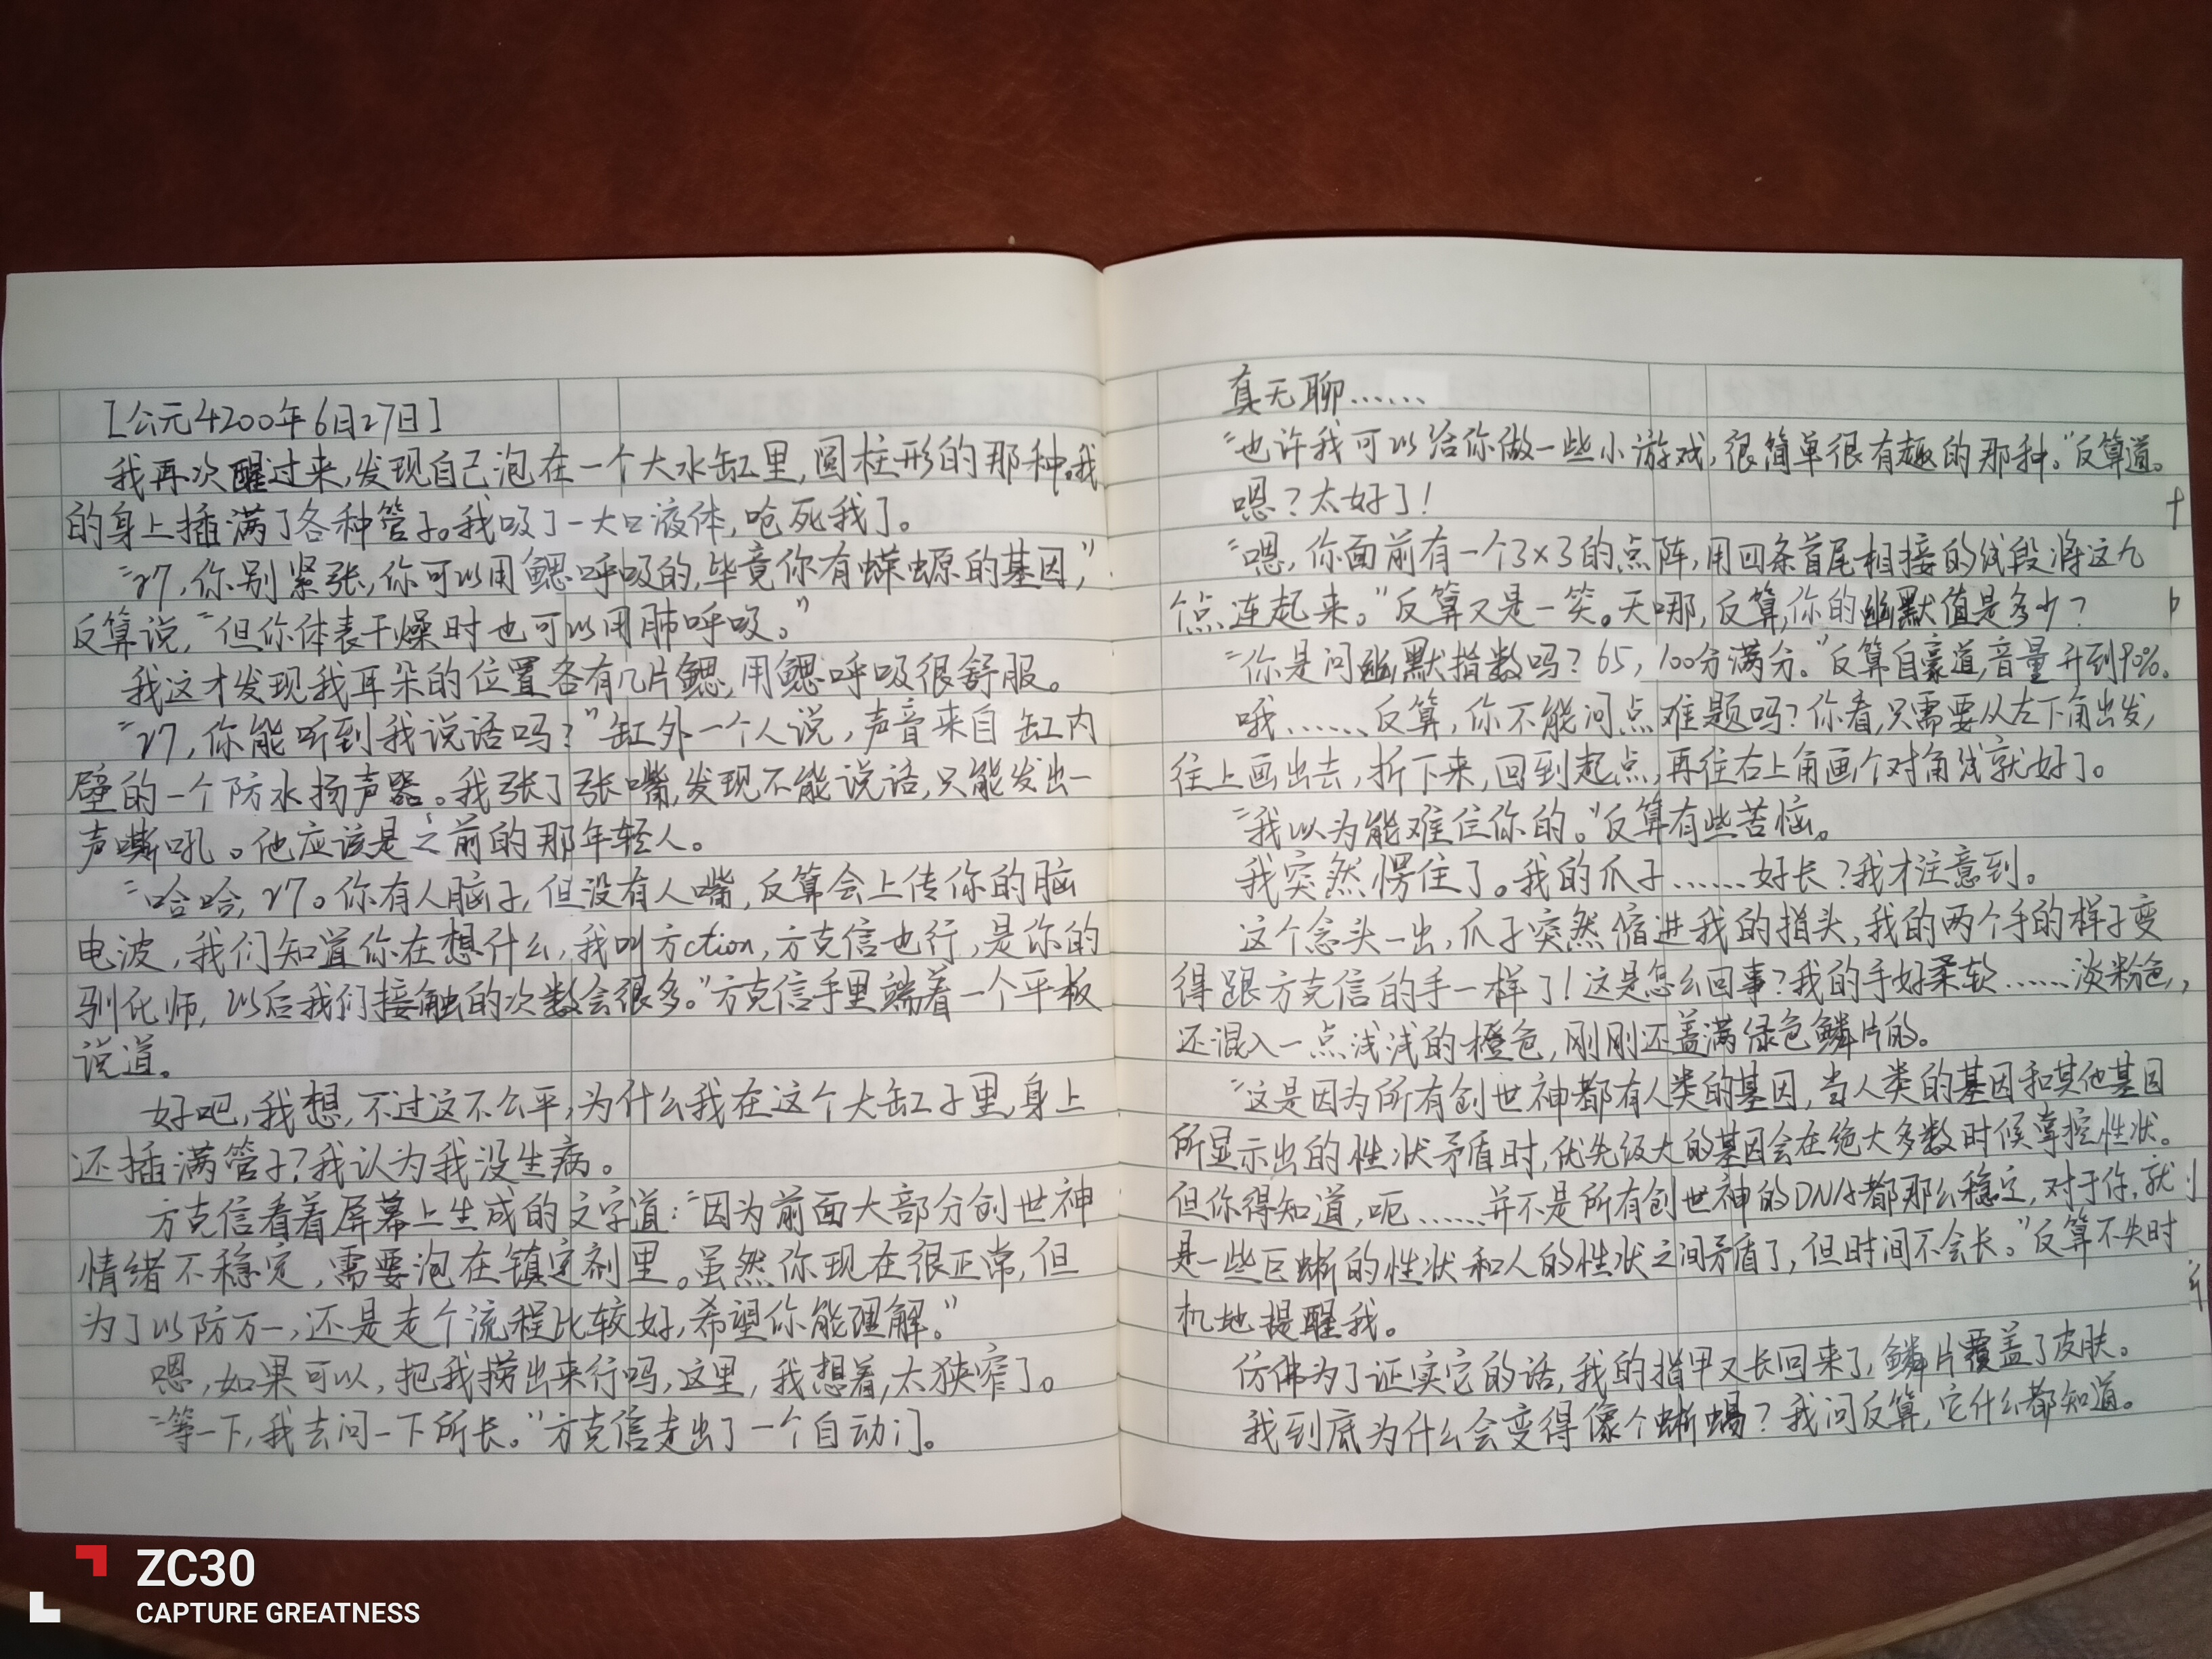 [公元4200年6月27日]
我再次醒过来,发现自己泡在一个大水缸里,圆柱形的那种。我
的身上插满了各种管子。我吸了一大口液体,呛死我了。
“27,你别紧张,你可以用鳃呼吸的,毕竟你有蝾螈的基因,”
反算说,“但你体表干燥时也可以用肺呼吸。”
我这才发现我耳朵的位置各有几片鳃,用鳃呼吸很舒服。
“27,你能听到我说话吗?”缸外一个人说,声音来自缸内
壁的一个防水扬声器。我张了张嘴,发现不能说话,只能发出一
声嘶吼。他应该是之前的那年轻人。
“哈哈,27。你有人脑子,但没有人嘴,反算会上传你的脑
电波,我们知道你在想什么,我叫方ction,方克信也行,是你的
驯化师,以后我们接触的次数会很多。”方克信手里端着一个平板
说道。
好吧,我想,不过这不公平,为什么我在这个大缸子里,身上
还插满管子?我认为我没生病。
方克信看着屏幕上生成的文字道:“因为前面大部分创世神
情绪不稳定,需要泡在镇定剂里。虽然你现在很正常,但
为了以防万一,还是走个流程比较好,希望你能理解。”
嗯,如果可以,把我捞出来行吗,这里,我想着,太狭窄了。
“等一下,我去问一下所长。”方克信走出了一个自动门。
真无聊……
“也许我可以给你做一些小游戏,很简单很有趣的那种。”反算道。
嗯?太好了!
“嗯,你面前有一个3×3的点阵,用四条首尾相接的线段将这九
个点连起来。”反算又是一笑。天哪,反算,你的幽默值是多少?
“你是问幽默指数吗?65,100分满分。”反算自豪道,音量升到90%。
哦……反算,你不能问点难题吗?你看,只需要从左下角出发,
往上画出去,折下来,回到起点,再往右上角画个对角线就好了。
“我以为能难住你的。”反算有些苦恼。
我突然愣住了。我的爪子……好长?我才注意到。
这个念头一出,爪子突然缩进我的指头,我的两个手的样子变
得跟方克信的手一样了!这是怎么回事?我的手好柔软……淡粉色,
还混入一点浅浅的橙色,刚刚还盖满绿色鳞片的。
“这是因为所有创世神都有人类的基因,当人类的基因和其他基因
所显示出的性状矛盾时,优先级大的基因会在绝大多数时候掌控性状。
但你得知道,呃……并不是所有创世神的DNA都那么稳定,对于你,就
是一些巨蜥的性状和人的性状之间矛盾了,但时间不会长。”反算不失时
机地提醒我。
仿佛为了证实它的话,我的指甲又长回来了,鳞片覆盖了皮肤。
我到底为什么会变得像个蜥蜴?我问反算,它什么都知道。
ZC30
CAPTURE GREATNESS